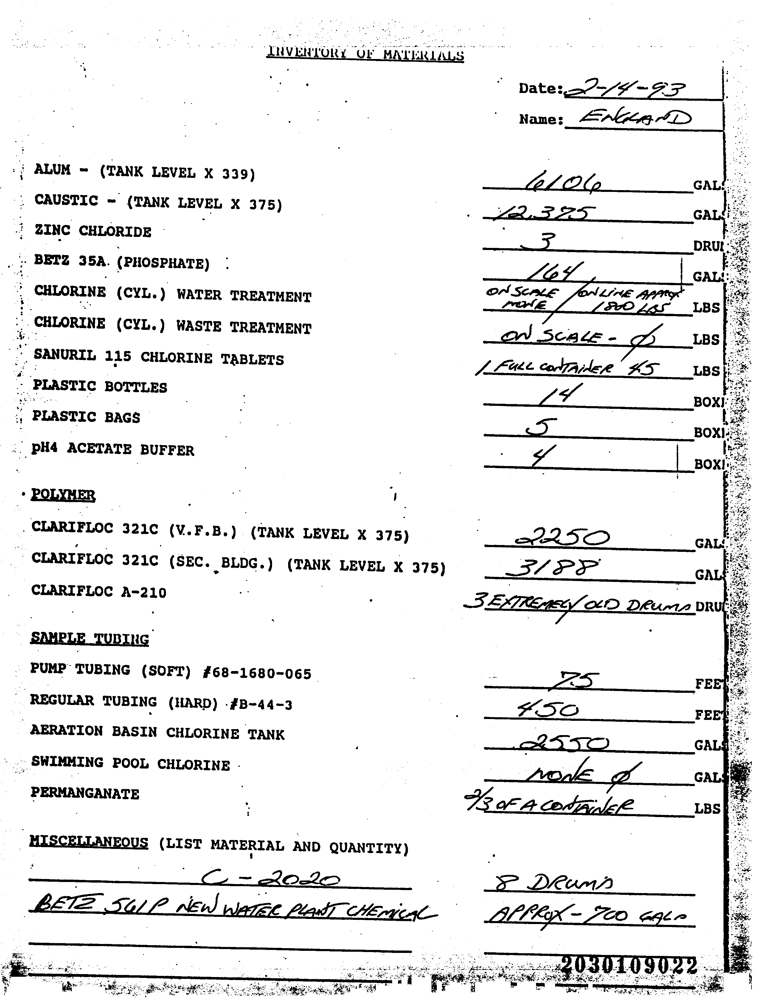 INVENTORY OF MATERIALS
Date: 2-14-93
Name: ENGLAND
ALUM - (TANK LEVEL X 339) 6106 GALS
CAUSTIC - (TANK LEVEL X 375) 12,375 GALS
ZINC CHLORIDE 3 DRU
BETZ 35A (PHOSPHATE) 164 GALS
CHLORINE (CYL.) WATER TREATMENT ON SCALE NONE / ON LINE APPROX 1800 LBS LBS
CHLORINE (CYL.) WASTE TREATMENT ON SCALE - Ø LBS
SANURIL 115 CHLORINE TABLETS 1 FULL CONTAINER 45 LBS
PLASTIC BOTTLES 14 BOX
PLASTIC BAGS 5 BOX
pH4 ACETATE BUFFER 4 BOX
POLYMER
CLARIFLOC 321C (V.F.B.) (TANK LEVEL X 375) 2250 GAL
CLARIFLOC 321C (SEC. BLDG.) (TANK LEVEL X 375) 3188 GAL
CLARIFLOC A-210 3 EXTREMELY OLD DRUMS DRU
SAMPLE TUBING
PUMP TUBING (SOFT) #68-1680-065 75 FEET
REGULAR TUBING (HARD) #B-44-3 450 FEET
AERATION BASIN CHLORINE TANK 2550 GALS
SWIMMING POOL CHLORINE NONE Ø GALS
PERMANGANATE 2/3 OF A CONTAINER LBS
MISCELLANEOUS (LIST MATERIAL AND QUANTITY)
C-2020 8 DRUMS
BETZ 561P NEW WATER PLANT CHEMICAL APPROX - 700 GALS
2030109022